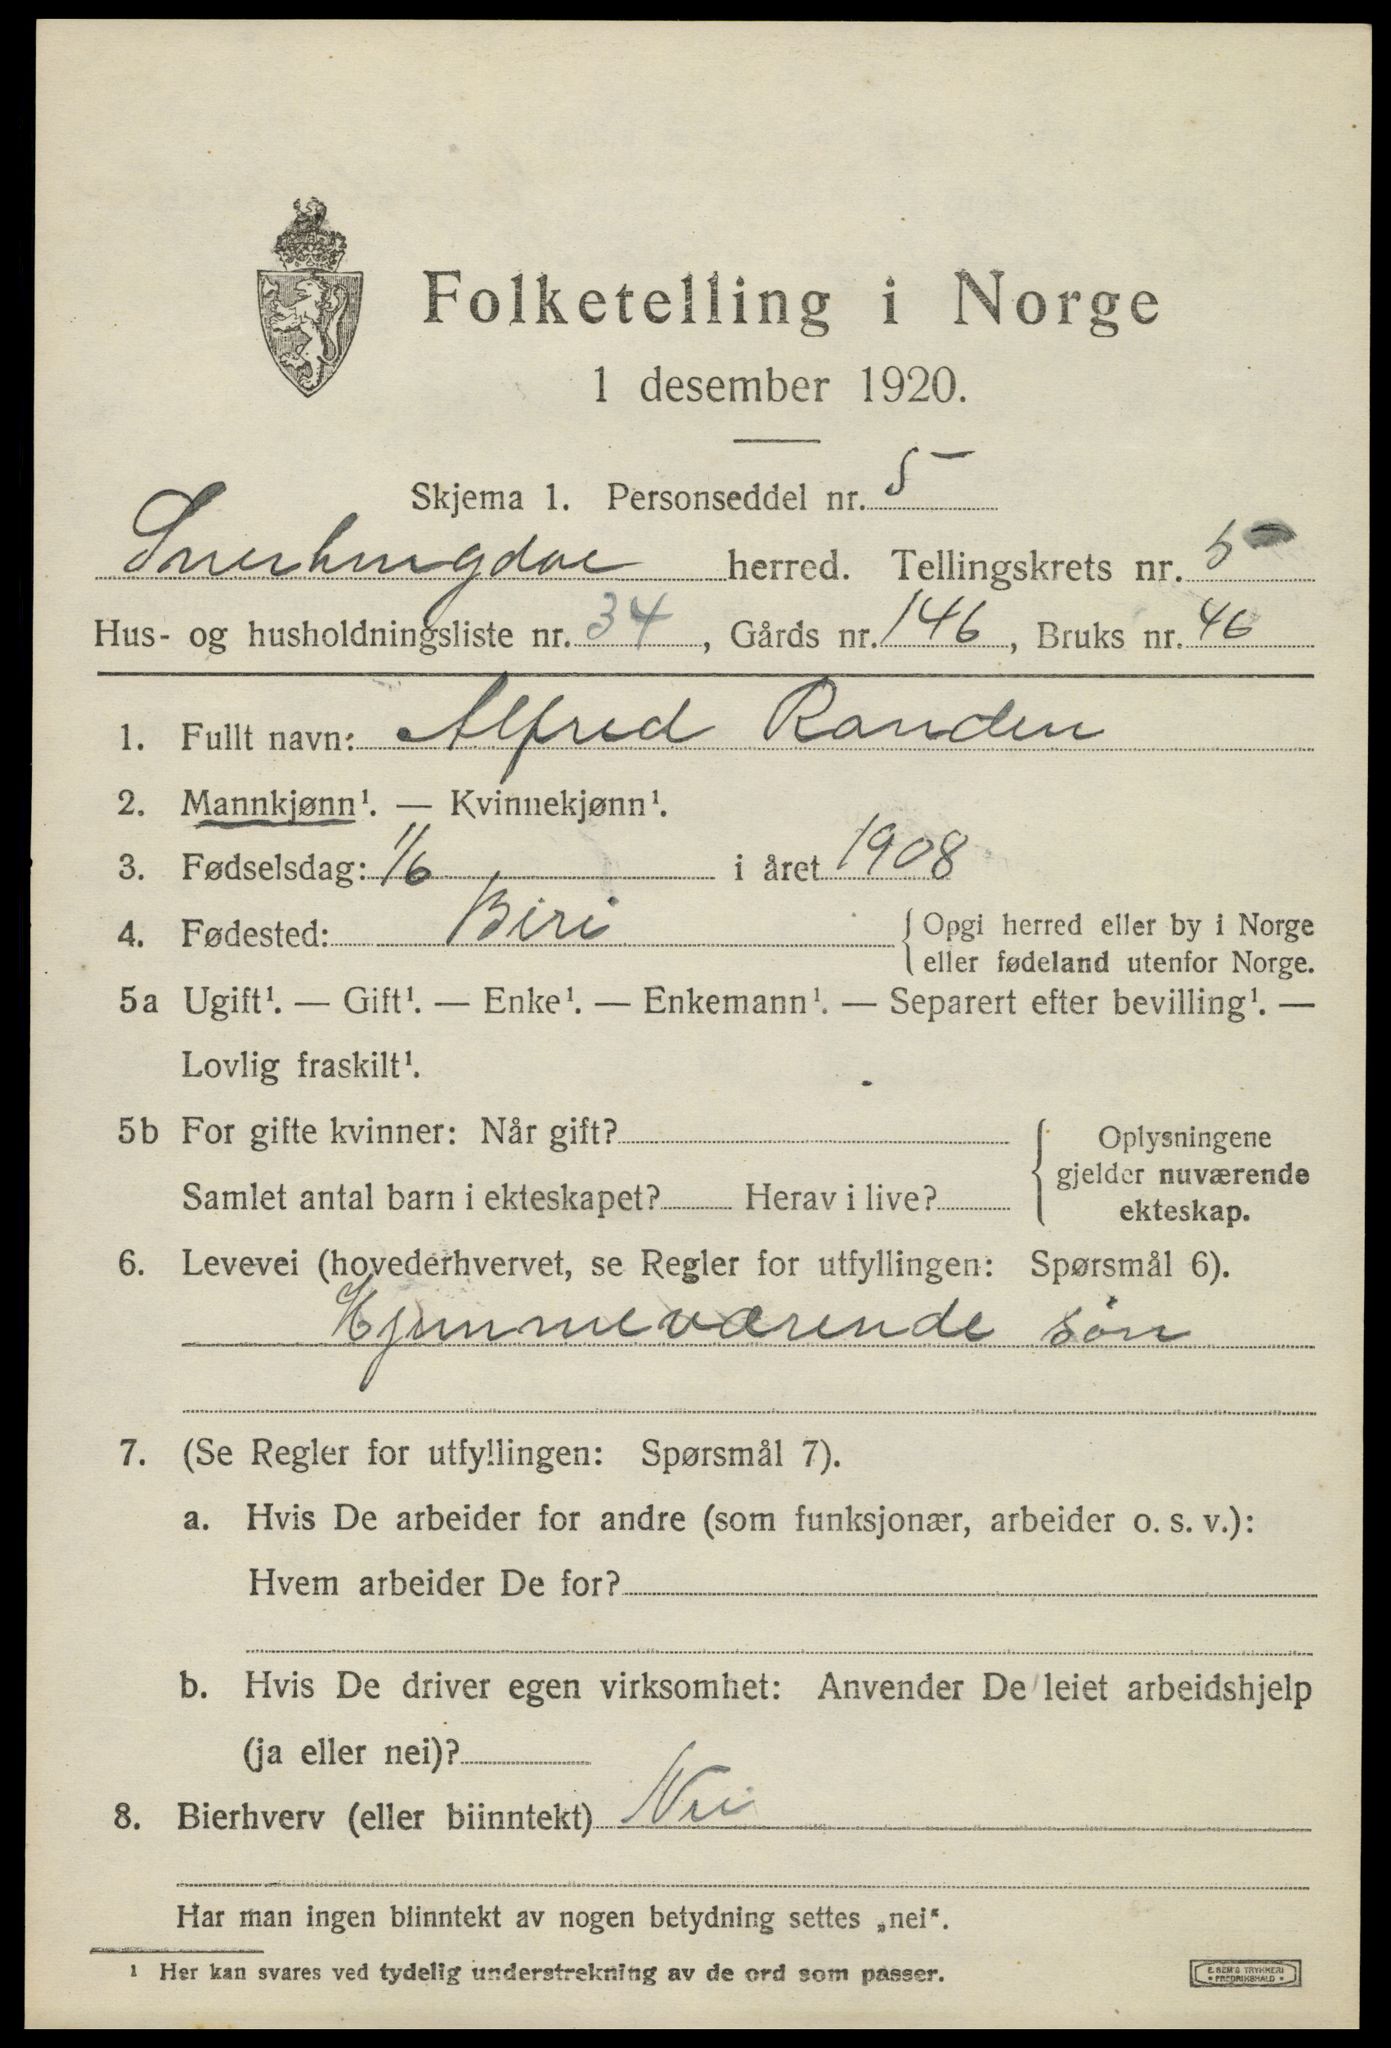 Folketelling i Norge
1 desember 1920.
Skjema 1. Personseddel nr. 5
herred. Tellingskrets nr. 5
Hus- og husholdningsliste nr. 34, Gårds nr. 146, Bruks nr. 46
1. Fullt navn: Alfred Randen
2. Mannkjønn¹. — Kvinnekjønn¹.
3. Fødselsdag: 1/6 i året 1908
4. Fødested: Biri {Opgi herred eller by i Norge
eller fødeland utenfor Norge.
5a Ugift¹. — Gift¹. — Enke¹. — Enkemann¹. — Separert efter bevilling¹. —
Lovlig fraskilt¹.
5b For gifte kvinner: Når gift? {Oplysningene
gjelder nuværende
Samlet antal barn i ekteskapet? Herav i live?
ekteskap.
6. Levevei (hovederhvervet, se Regler for utfyllingen: Spørsmål 6).
Hjemmeværende søn
7. (Se Regler for utfyllingen: Spørsmål 7).
a. Hvis De arbeider for andre (som funksjonær, arbeider o. s. v.):
Hvem arbeider De for?
b. Hvis De driver egen virksomhet: Anvender De leiet arbeidshjelp
(ja eller nei)?
8. Bierhverv (eller biinntekt) Nei
Har man ingen biinntekt av nogen betydning settes „nei“.
¹ Her kan svares ved tydelig understrekning av de ord som passer.
E. SEM'S TRYKKERI
• FREDRIKSHALD •